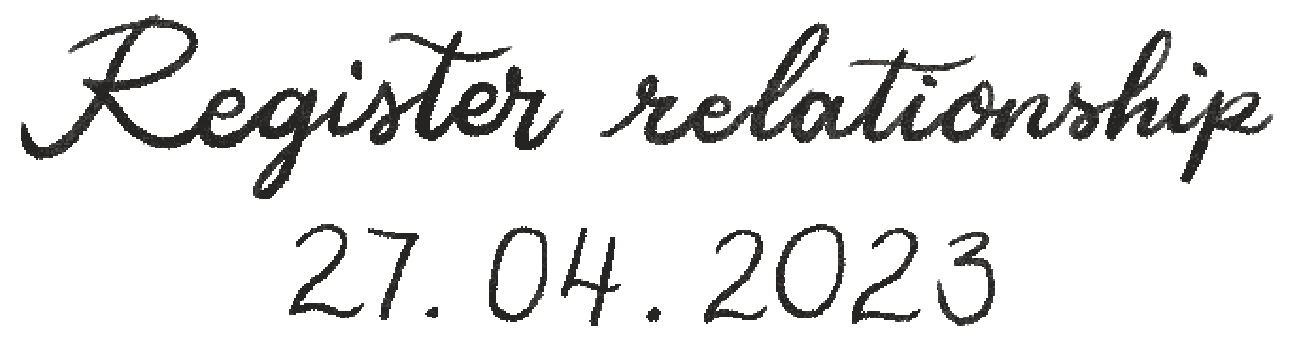 Register relationship
27.04.2023